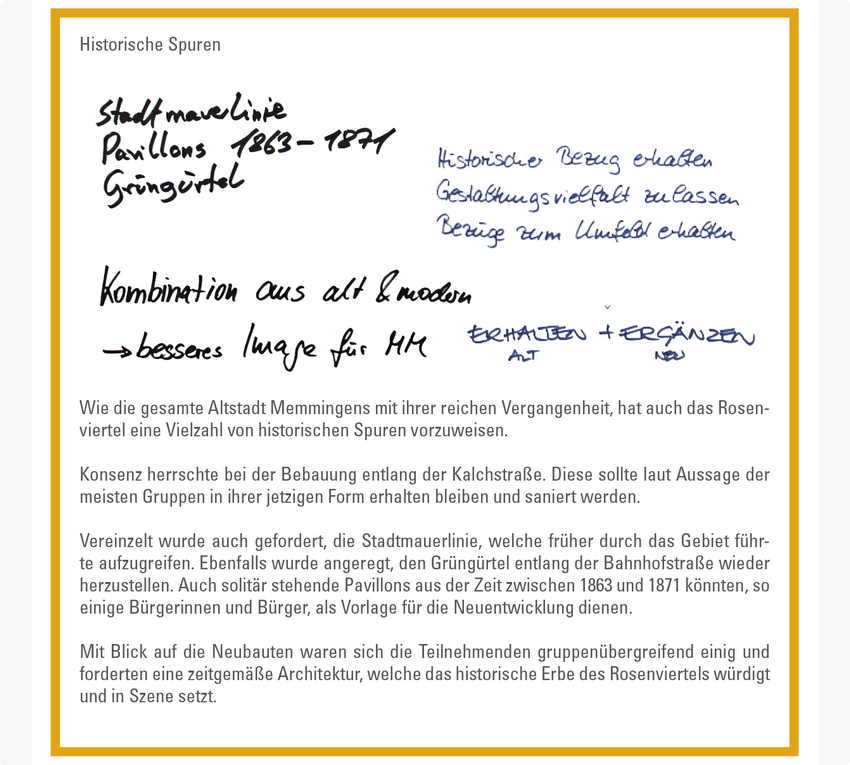 Historische Spuren
Stadtmauerlinie
Pavillons 1863 – 1871
Grüngürtel
Historischer Bezug erhalten
Gestaltungsvielfalt zulassen
Bezüge zum Umfeld erhalten
Kombination aus alt & modern
→ besseres Image für MM
ERHALTEN + ERGÄNZEN
ALT NEU
Wie die gesamte Altstadt Memmingens mit ihrer reichen Vergangenheit, hat auch das Rosen-
viertel eine Vielzahl von historischen Spuren vorzuweisen.
Konsenz herrschte bei der Bebauung entlang der Kalchstraße. Diese sollte laut Aussage der
meisten Gruppen in ihrer jetzigen Form erhalten bleiben und saniert werden.
Vereinzelt wurde auch gefordert, die Stadtmauerlinie, welche früher durch das Gebiet führ-
te aufzugreifen. Ebenfalls wurde angeregt, den Grüngürtel entlang der Bahnhofstraße wieder
herzustellen. Auch solitär stehende Pavillons aus der Zeit zwischen 1863 und 1871 könnten, so
einige Bürgerinnen und Bürger, als Vorlage für die Neuentwicklung dienen.
Mit Blick auf die Neubauten waren sich die Teilnehmenden gruppenübergreifend einig und
forderten eine zeitgemäße Architektur, welche das historische Erbe des Rosenviertels würdigt
und in Szene setzt.